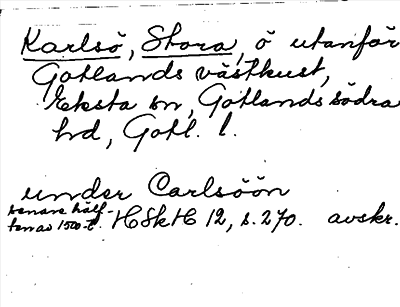 Karlsö, Stora, ö utanför
Gotlands västkust,
Eksta sn, Gotlands södra
hd, Gotl. l.
under Carlsöön
senare hälf-
ten av 1500-t. HSkH 12, s. 270. avskr.